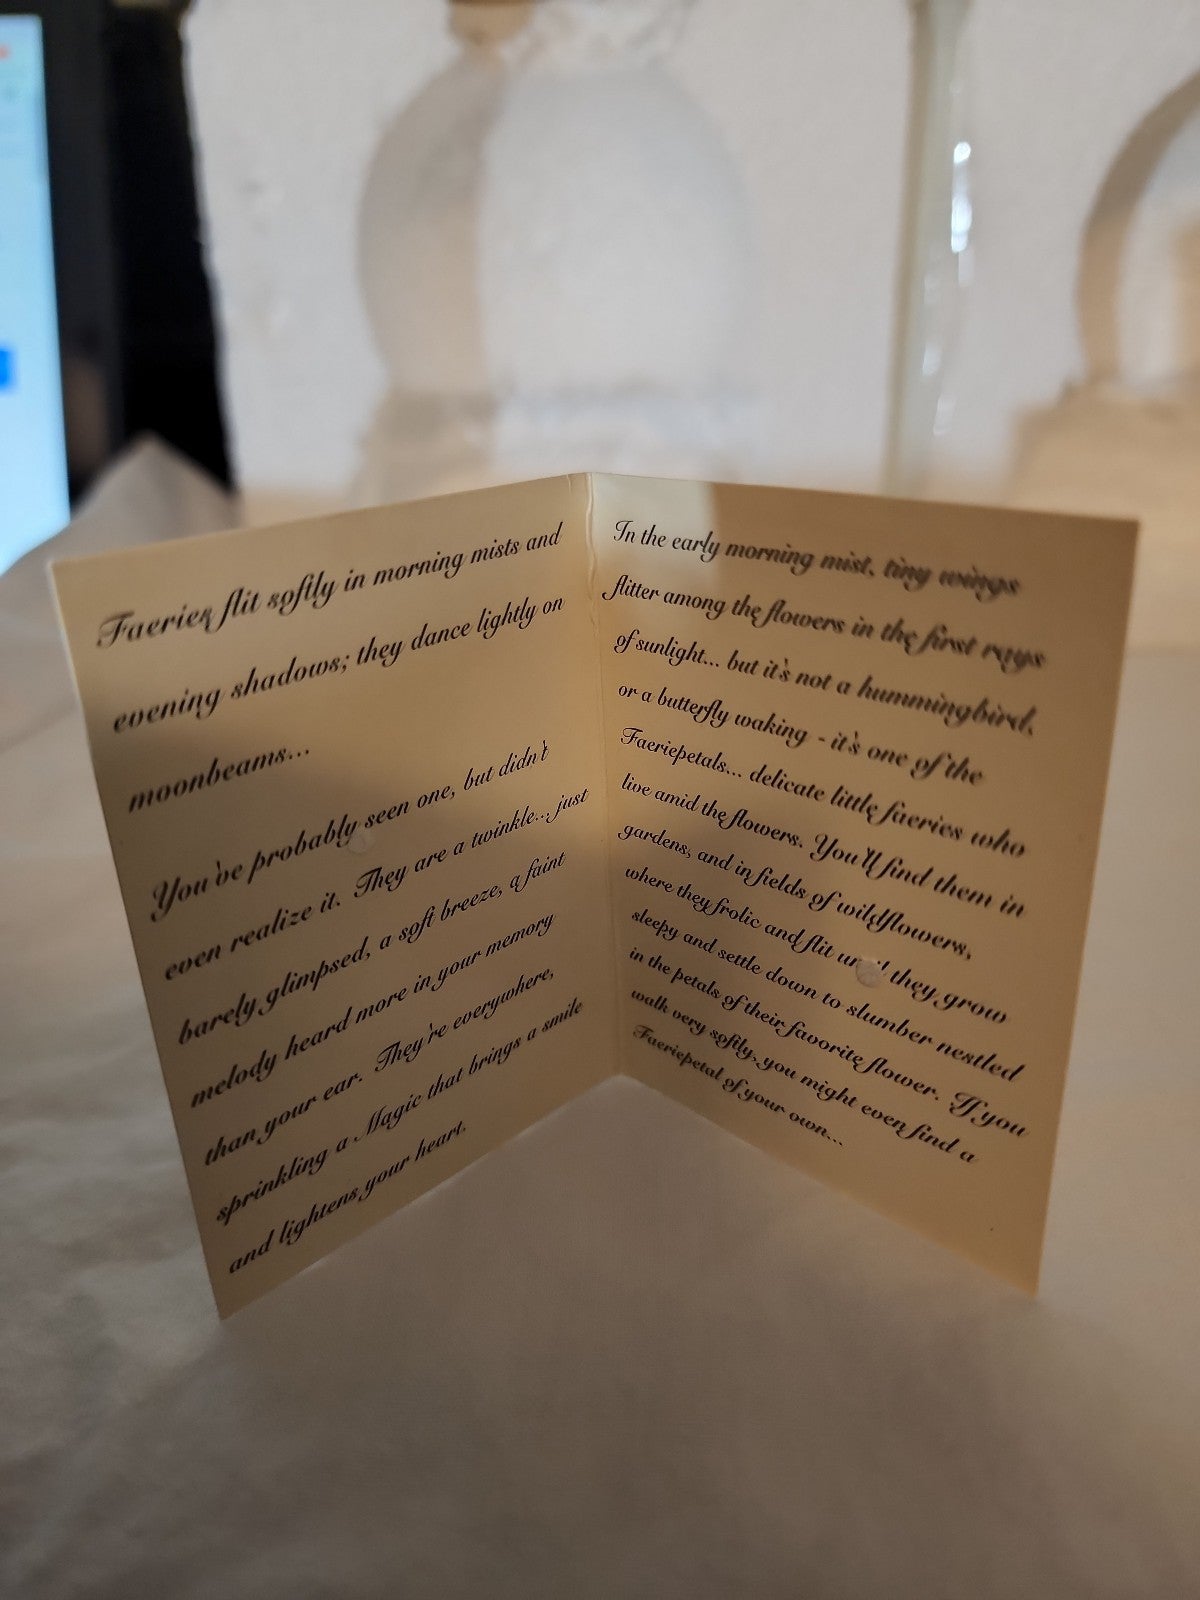 Faeries flit softly in morning mists and
evening shadows; they dance lightly on
moonbeams...
You've probably seen one, but didn't
even realize it. They are a twinkle... just
barely glimpsed, a soft breeze, a faint
melody heard more in your memory
than your ear. They're everywhere,
sprinkling a Magic that brings a smile
and lightens your heart.
In the early morning mist, tiny wings
flitter among the flowers in the first rays
of sunlight... but it's not a hummingbird,
or a butterfly waking - it's one of the
Faeriepetals... delicate little faeries who
live amid the flowers. You'll find them in
gardens, and in fields of wildflowers,
where they frolic and flit until they grow
sleepy and settle down to slumber nestled
in the petals of their favorite flower. If you
walk very softly, you might even find a
Faeriepetal of your own...